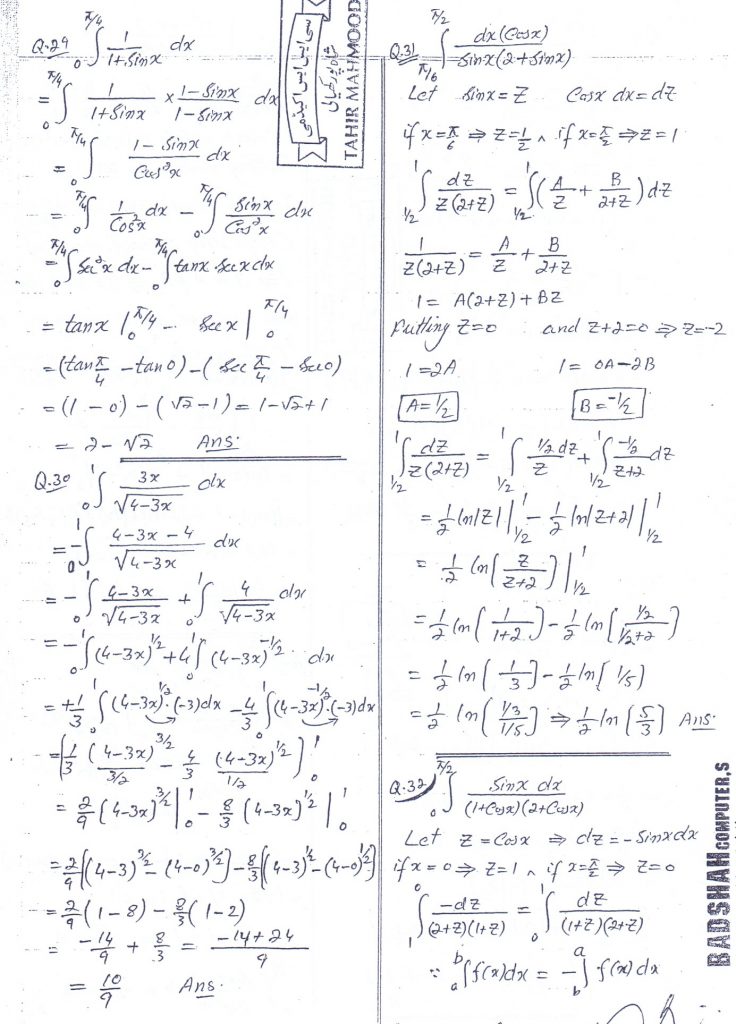 Q.29 ∫₀^{π/4} 1/(1+Sinx) dx
= ∫₀^{π/4} 1/(1+Sinx) × (1-Sinx)/(1-Sinx) dx
= ∫₀^{π/4} (1-Sinx)/(Cos²x) dx
= ∫₀^{π/4} 1/(Cos²x) dx - ∫₀^{π/4} Sinx/(Cos²x) dx
= ∫₀^{π/4} Sec²x dx - ∫₀^{π/4} tanx Secx dx
= tanx |₀^{π/4} - Secx |₀^{π/4}
= (tan π/4 - tan0) - (Sec π/4 - Sec0)
= (1 - 0) - (√2 - 1) = 1 - √2 + 1
= 2 - √2 Ans:
Q.30 ∫₀¹ 3x/√(4-3x) dx
= -∫₀¹ (4-3x-4)/√(4-3x) dx
= -∫₀¹ (4-3x)/√(4-3x) + ∫₀¹ 4/√(4-3x) dx
= -∫₀¹ (4-3x)^{1/2} + 4∫₀¹ (4-3x)^{-1/2} dx
= +1/3 ∫₀¹ (4-3x)^{1/2}·(-3)dx - 4/3 ∫₀¹ (4-3x)^{-1/2}·(-3)dx
= [1/3 (4-3x)^{3/2}/(3/2) - 4/3 (4-3x)^{1/2}/(1/2)]₀¹
= 2/9 (4-3x)^{3/2} |₀¹ - 8/3 (4-3x)^{1/2} |₀¹
= 2/9 [(4-3)^{3/2} - (4-0)^{3/2}] - 8/3 [(4-3)^{1/2} - (4-0)^{1/2}]
= 2/9 (1-8) - 8/3 (1-2)
= -14/9 + 8/3 = (-14+24)/9
= 10/9 Ans:
سی ایس ایس اکیڈمی
TAHIR MAHMOOD
Q.31 ∫_{π/6}^{π/2} dx(Cosx)/(Sinx(2+Sinx))
Let Sinx = Z Cosx dx = dZ
if x=π/6 ⇒ Z=1/2 ∧ if x=π/2 ⇒ Z=1
∫_{1/2}^1 dZ/(Z(2+Z)) = ∫_{1/2}^1 (A/Z + B/(2+Z)) dZ
1/(Z(2+Z)) = A/Z + B/(2+Z)
1 = A(2+Z) + BZ
Putting Z=0 and Z+2=0 ⇒ Z=-2
1 = 2A 1 = 0A-2B
A=1/2 B=-1/2
∫_{1/2}^1 dZ/(Z(2+Z)) = ∫_{1/2}^1 (1/2 dZ)/Z + ∫_{1/2}^1 (-1/2)/(Z+2) dZ
= 1/2 ln|Z| |_{1/2}^1 - 1/2 ln|Z+2| |_{1/2}^1
= 1/2 ln(Z/(Z+2)) |_{1/2}^1
= 1/2 ln(1/(1+2)) - 1/2 ln((1/2)/(1/2+2))
= 1/2 ln(1/3) - 1/2 ln(1/5)
= 1/2 ln((1/3)/(1/5)) ⇒ 1/2 ln(5/3) Ans:
Q.32 ∫₀^{π/2} Sinx dx/((1+Cosx)(2+Cosx))
Let Z = Cosx ⇒ dZ = -Sinx dx
if x=0 ⇒ Z=1 ∧ if x=π/2 ⇒ Z=0
∫₁⁰ -dZ/((2+Z)(1+Z)) = ∫₀¹ dZ/((1+Z)(2+Z))
∵ ∫ₐᵇ f(x)dx = -∫_b^a f(x)dx
BADSHAH COMPUTER,S